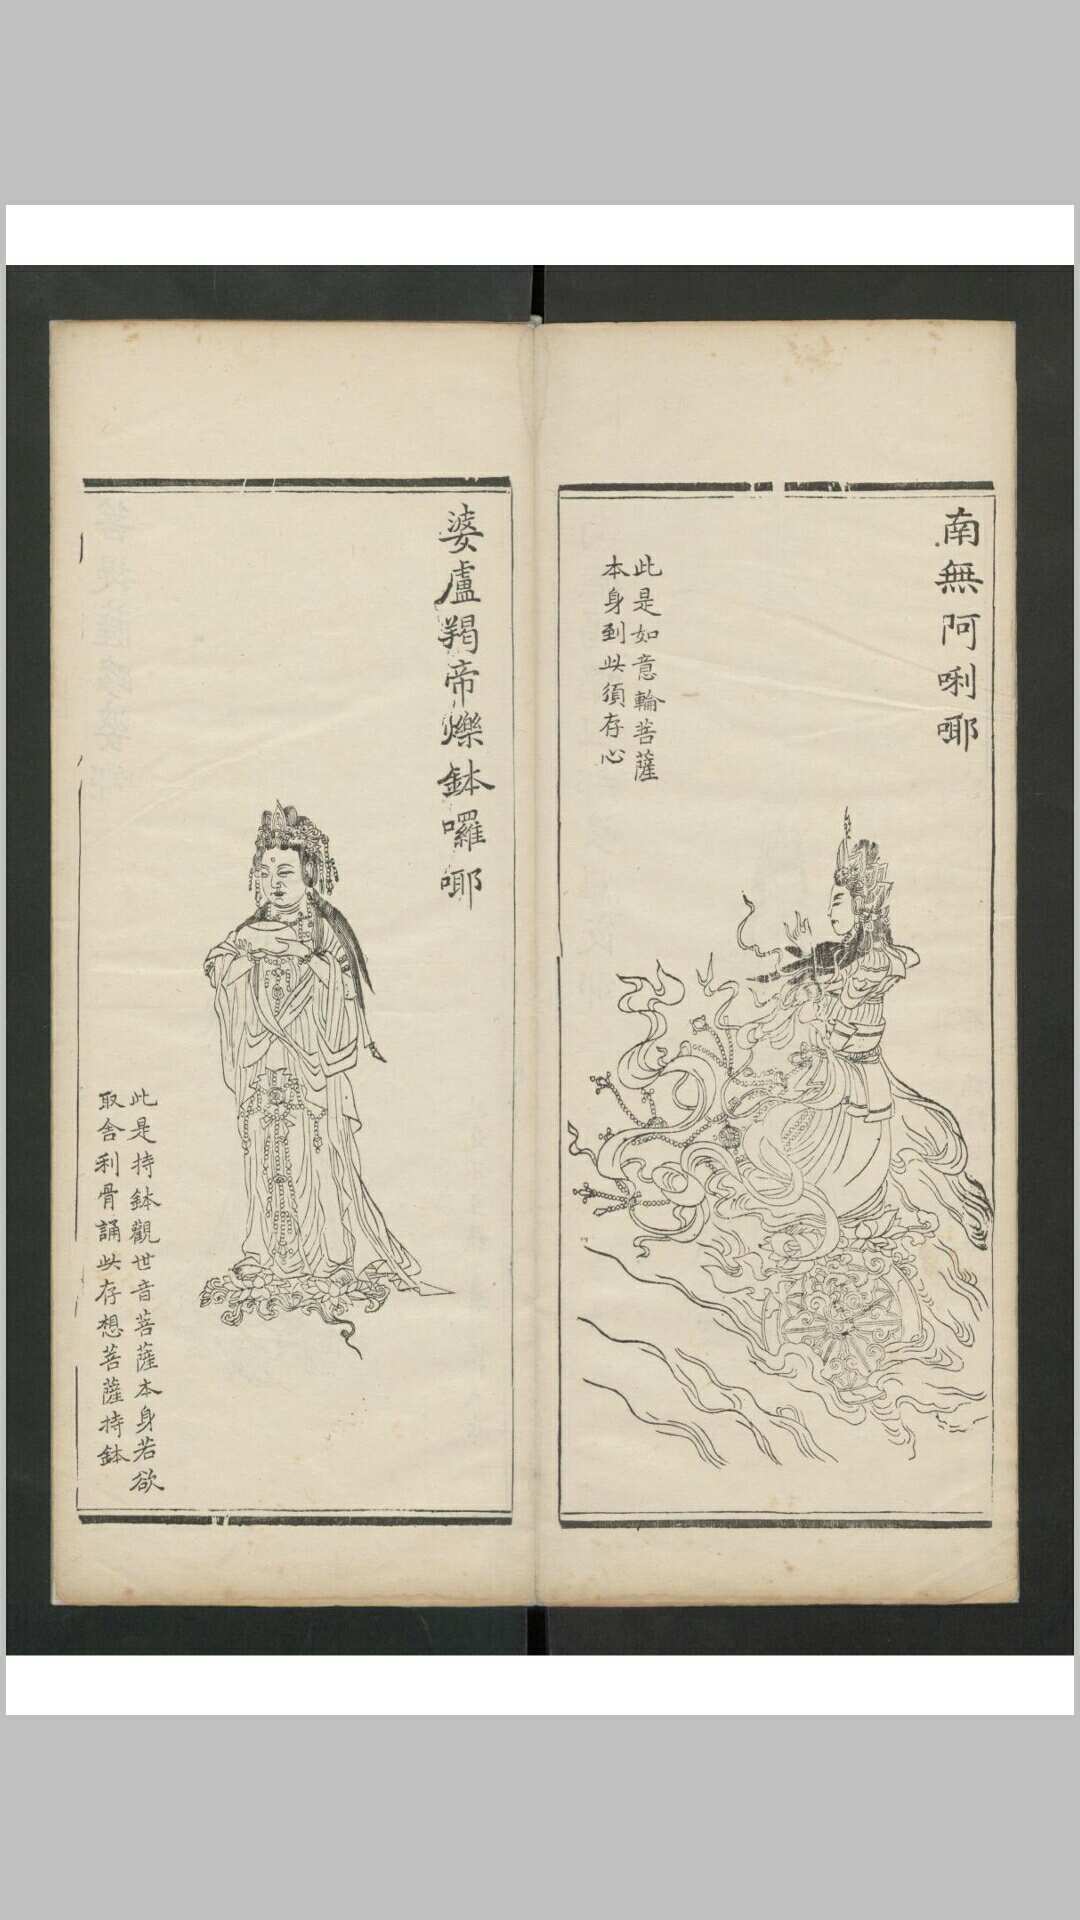 南無阿唎㖿
此是如意輪菩薩
本身到此須存心
婆盧羯帝爍鉢囉㖿
此是持鉢觀世音菩薩本身若欲
取舍利骨誦此存想菩薩持鉢